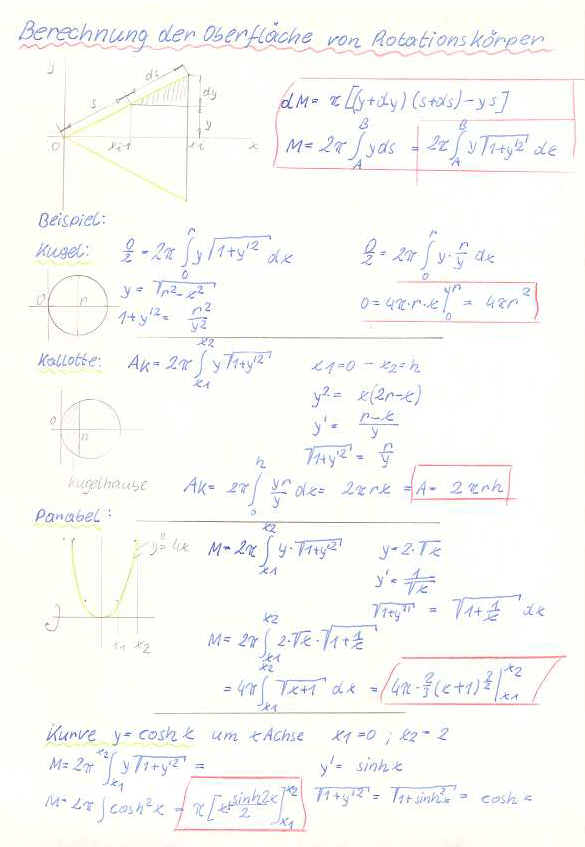 Berechnung der Oberfläche von Rotationskörper
y
ds
s
dy
y
0
x
dM = π[(y+dy)(s+ds)-ys]
M = 2π∫_A^B y ds = 2π∫_A^B y√(1+y'²) dx
Beispiel:
Kugel: O/2 = 2π∫_0^r y√(1+y'²) dx
O/2 = 2π∫_0^r y·r/y dx
y = √(r²-x²)
0
r
1+y'² = r²/y²
O = 4π·r·x|_0^r = 4πr²
Kallotte: AK = 2π∫_x1^x2 y√(1+y'²)
x1=0 - x2=h
y² = x(2r-x)
0
y' = (r-x)/y
√(1+y'²) = r/y
Kugelhaube
AK = 2π∫_0^h yr/y dx = 2πrx = A = 2πrh
Parabel:
y² = 4x
M = 2π∫_x1^x2 y·√(1+y'²)
y = 2·√x
y' = 1/√x
√(1+y'²) = √(1+1/x) dx
x1 x2
M = 2π∫_x1^x2 2·√x·√(1+1/x)
= 4π∫_x1^x2 √(x+1) dx = 4π·2/3(x+1)^(3/2)|_x1^x2
Kurve y = cosh x um x Achse x1=0 ; x2=2
M = 2π∫_x1^x2 y√(1+y'²) =
y' = sinh x
M = 2π∫cosh²x = π[x+sinh2x/2]_x1^x2
√(1+y'²) = √(1+sinh²x) = cosh x